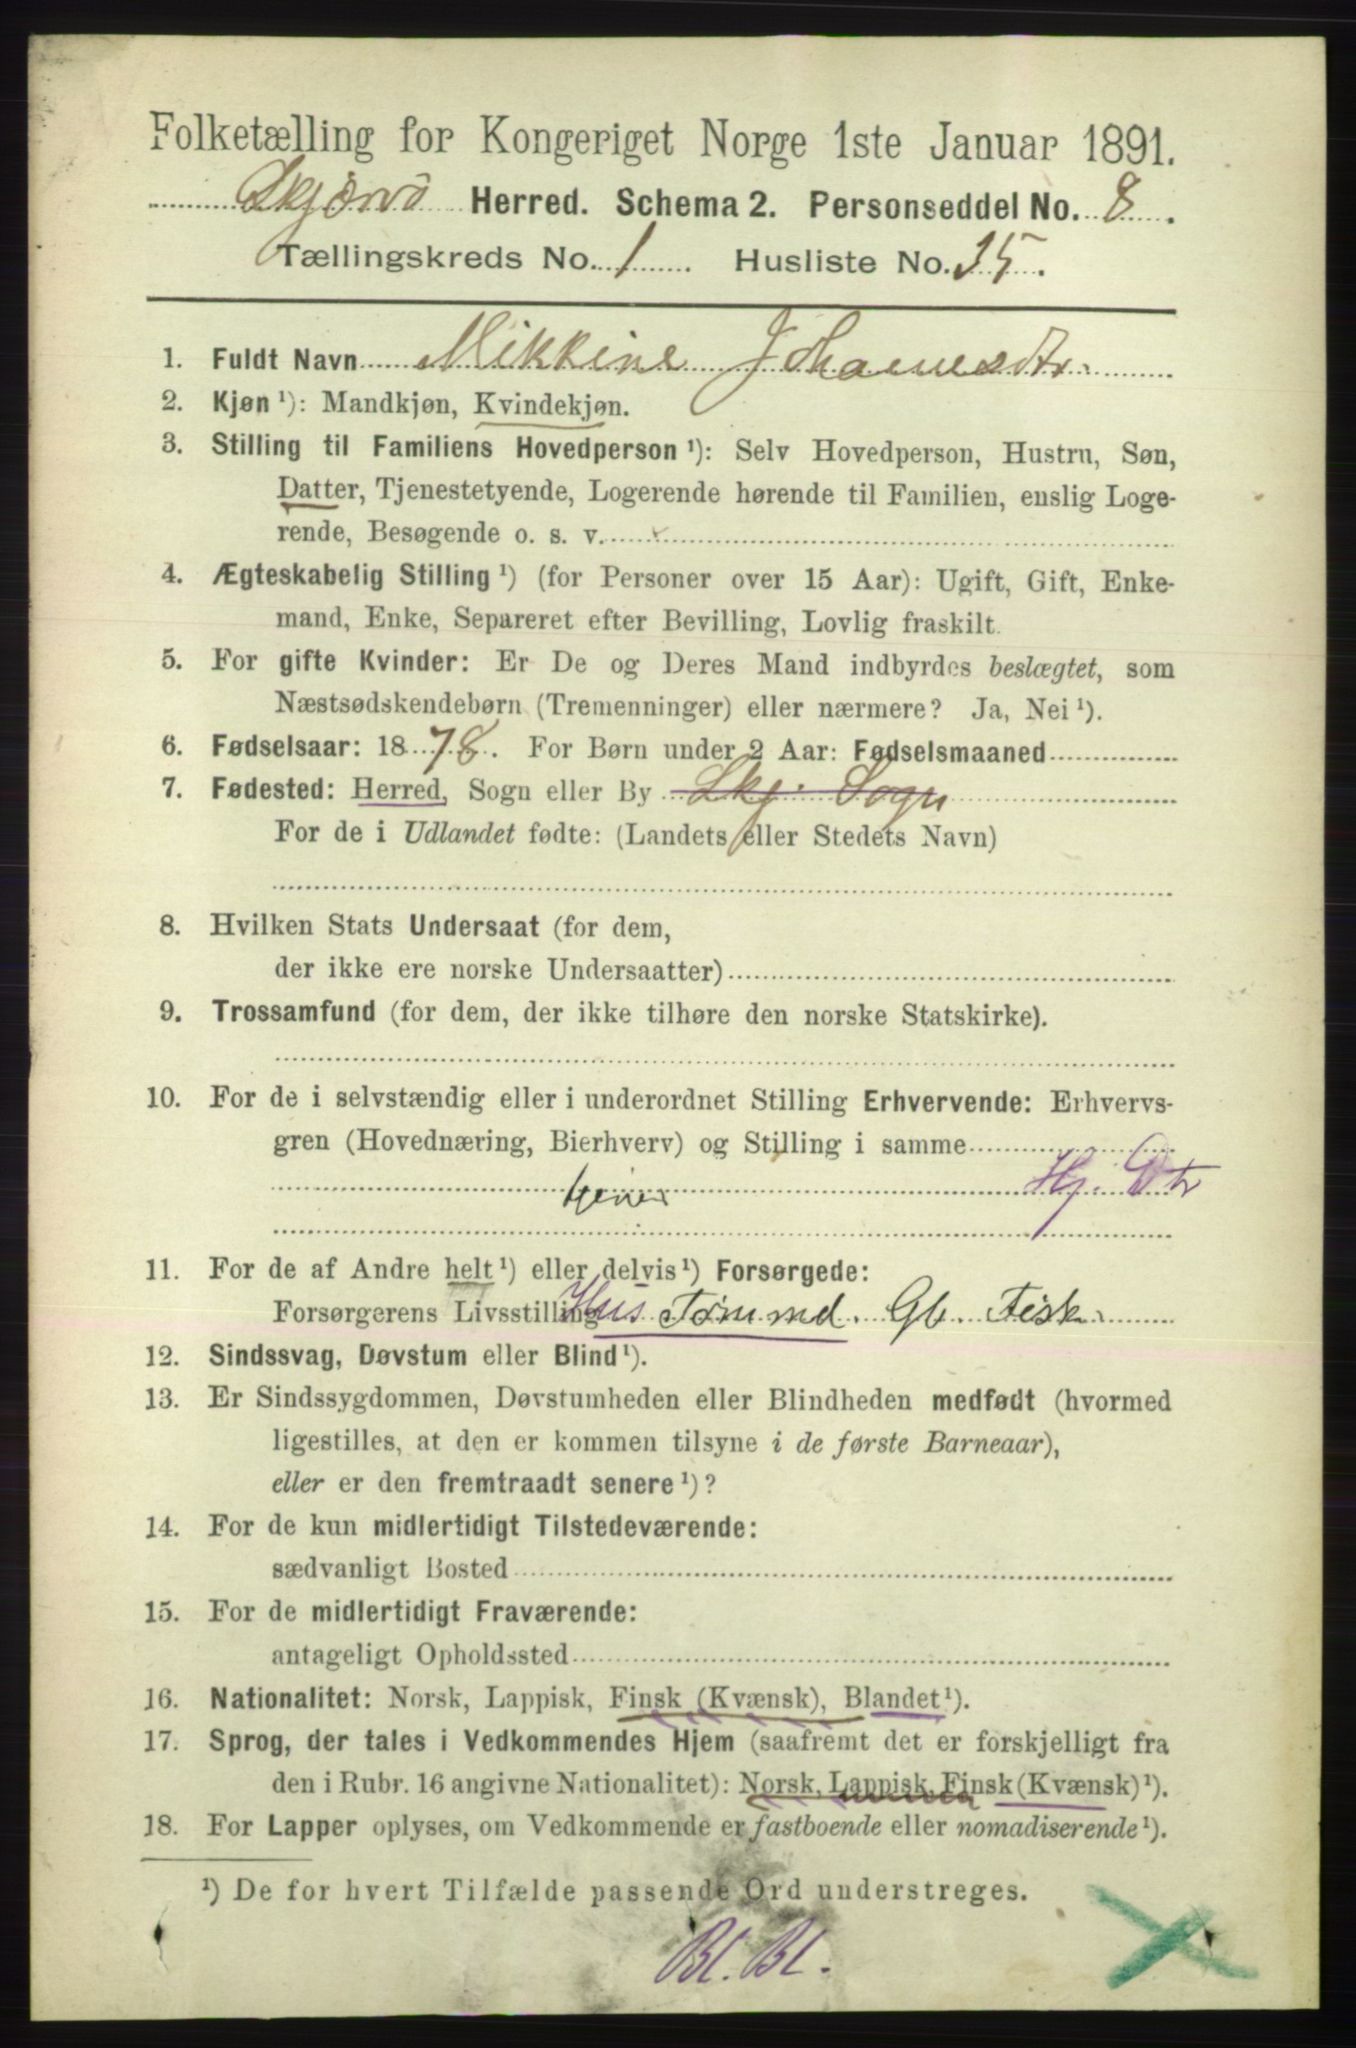 Folketælling for Kongeriget Norge 1ste Januar 1891.
Skjervø Herred. Schema 2. Personseddel No. 8.
Tællingskreds No. 1 Husliste No. 35.
1. Fuldt Navn Mikkine Johannesdtr.
2. Kjøn ¹): Mandkjøn, Kvindekjøn.
3. Stilling til Familiens Hovedperson ¹): Selv Hovedperson, Hustru, Søn,
Datter, Tjenestetyende, Logerende hørende til Familien, enslig Loge-
rende, Besøgende o. s. v.
4. Ægteskabelig Stilling ¹) (for Personer over 15 Aar): Ugift, Gift, Enke-
mand, Enke, Separeret efter Bevilling, Lovlig fraskilt.
5. For gifte Kvinder: Er De og Deres Mand indbyrdes beslægtet, som
Næstsødskendebørn (Tremenninger) eller nærmere? Ja, Nei ¹).
6. Fødselsaar: 1878. For Børn under 2 Aar: Fødselsmaaned
7. Fødested: Herred, Sogn eller By Skj. Sogn
For de i Udlandet fødte: (Landets eller Stedets Navn)
8. Hvilken Stats Undersaat (for dem,
der ikke ere norske Undersaatter)
9. Trossamfund (for dem, der ikke tilhøre den norske Statskirke).
10. For de i selvstændig eller i underordnet Stilling Erhvervende: Erhvervs-
gren (Hovednæring, Bierhverv) og Stilling i samme
Hj. Dtr
11. For de af Andre helt ¹) eller delvis ¹) Forsørgede:
Forsørgerens Livsstilling Hus Tømmd. Gb. Fisk.
12. Sindssvag, Døvstum eller Blind ¹).
13. Er Sindssygdommen, Døvstumheden eller Blindheden medfødt (hvormed
ligestilles, at den er kommen tilsyne i de første Barneaar),
eller er den fremtraadt senere ¹)?
14. For de kun midlertidigt Tilstedeværende:
sædvanligt Bosted
15. For de midlertidigt Fraværende:
antageligt Opholdssted
16. Nationalitet: Norsk, Lappisk, Finsk (Kvænsk), Blandet ¹).
17. Sprog, der tales i Vedkommendes Hjem (saafremt det er forskjelligt fra
den i Rubr. 16 angivne Nationalitet): Norsk, Lappisk, Finsk (Kvænsk) ¹).
18. For Lapper oplyses, om Vedkommende er fastboende eller nomadiserende ¹).
¹) De for hvert Tilfælde passende Ord understreges.
Bl. Bl.